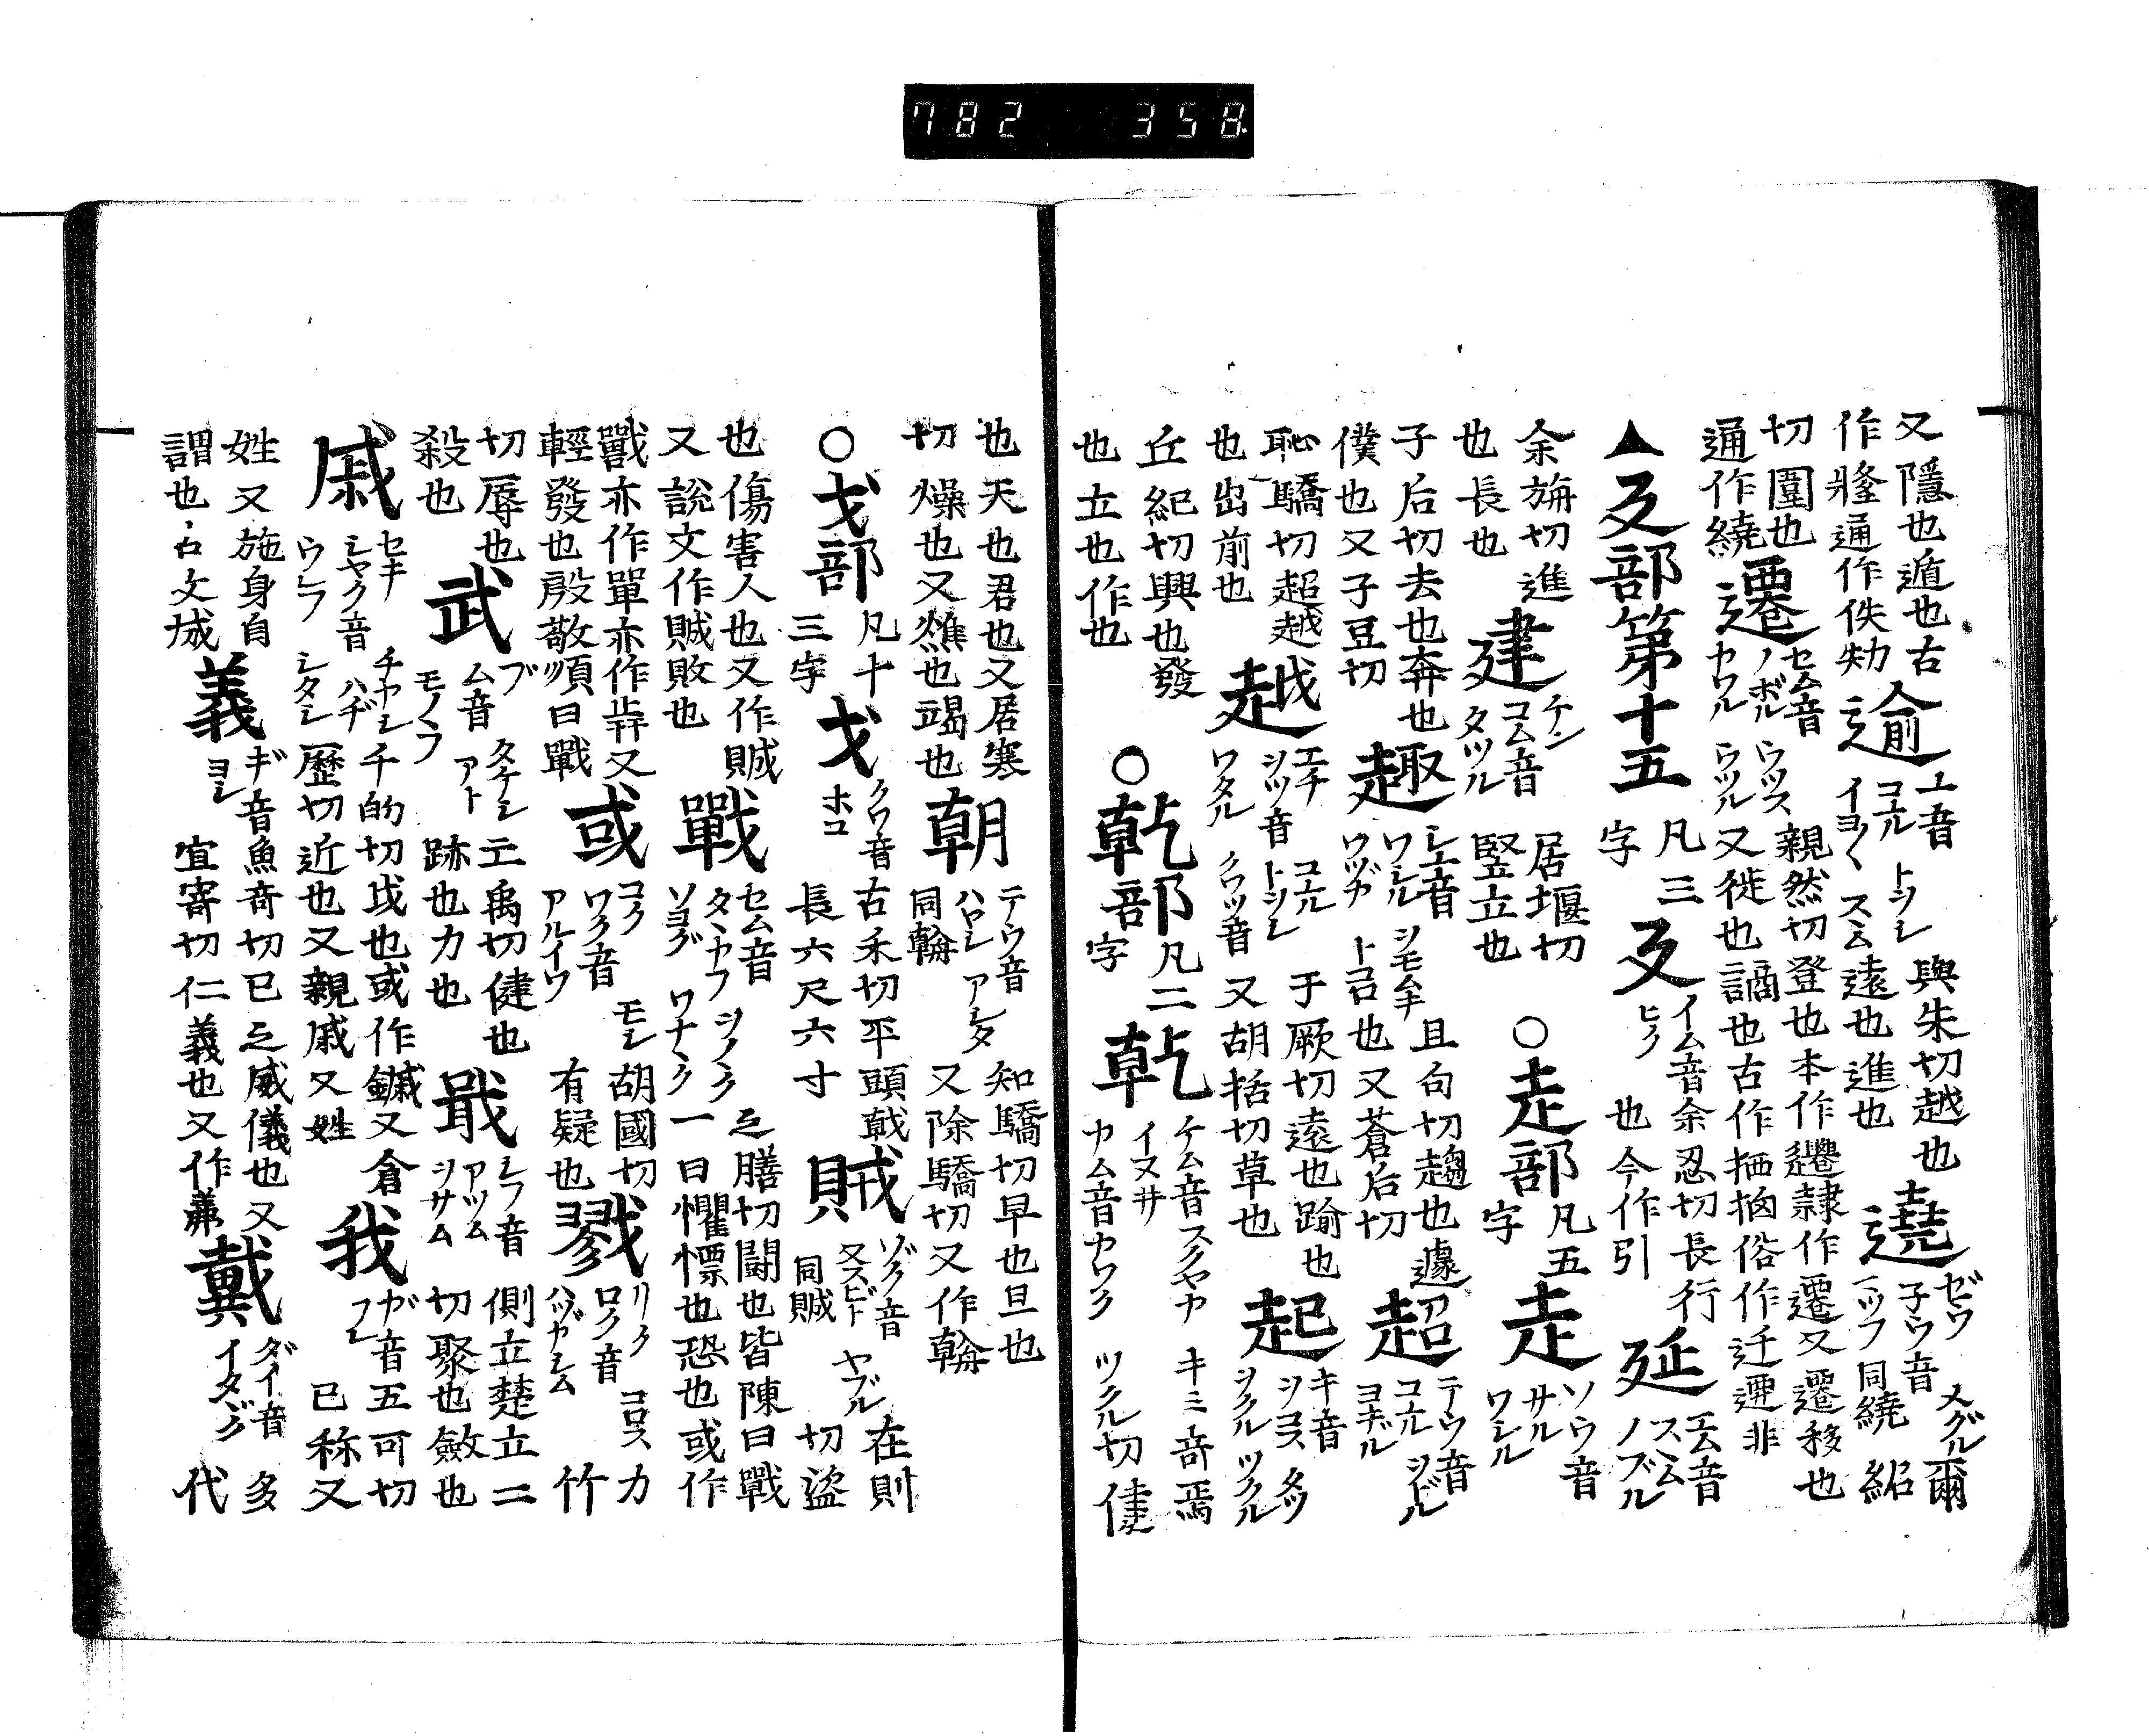 782 358
又隱也遁也古 逾 ユ音 コエル トヲシ イヨ〱 スム 與朱切越也 遶 ゼウ 子ウ音 メグル 爾
作䢦通作佚劮 遠也進也 同繞 紹
切圍也 遷 セム音 ノボル ウツス ヤワル ウツル 親然切登也本作䙴隷作遷又遷移也
通作繞 又徙也謫也古作拪俗作迁迊非
▲廴部第十五 凡三字 廴 イム音 ヒク 余忍切長行也今作引 延 エム音 スヽム ノブル
余旃切進 建 ケン コム音 タツル 居堰切 ○走部 凡五字 走 ソウ音 サル ワシル
也長也 竪立也
子后切去也奔也 趣 シユ音 ワシル シモムキ ワヅカ トコロ 且句切趨也遽 超 テウ音 コエル シドル ヨギル
僕也又子豆切 也又蒼后切
耻驕切超越 越 エチ シツ音 コエル トヲシ ワタル クワツ音 于厥切遠也踰也 起 キ音 ヲコス タツ シクル ツクル
也出前也 又胡括切草也
丘紀切興也發 ○乾部 凡二字 乾 ケム音 スクヤカ キミ イヌヰ ヤム音 ヤワク ツクル 奇焉
也立也作也 切健
也天也君也又居寒 朝 テウ音 ハヤシ アシタ 同翰 知驕切早也旦也
切燥也又燋也竭也 又除驕切又作翰
○戈部 凡十三字 戈 クワ音 ホコ 古禾切平頭戟 賊 ゾク音 ヌスビト ヤブル 同賊 在則
長六尺六寸 切盜
也傷害人也又作賊 戰 セム音 タヽカフ ヲノヽク ソヨグ ワナヽク 之膳切鬪也皆陳曰戰
又説文作賊敗也 一曰懼慓也恐也或作
戰亦作單亦作𢧐又 或 コク ワク音 モシ アルイワ 胡國切 戮 リク ロク音 コロス ハヅカシム 力
輕發也殷敬順曰戰 有疑也 竹
切辱也 武 ブ ム音 タケシ モノヽフ アト 亡禹切健也 戢 シフ音 アツム ヲサム 側立楚立二
殺也 跡也力也 切聚也斂也
戚 セキ シヤク音 チヤシ ウレフ ハヂ シタシ 千的切戉也或作鏚又倉 我 ガ音 フレ 五可切
歴切近也又親戚又姓 已称又
姓又施身自 義 ギ音 ヨシ 魚奇切已之威儀也又 戴 ダイ音 イタヾク 多
謂也古文城 宜寄切仁義也又作羛 代